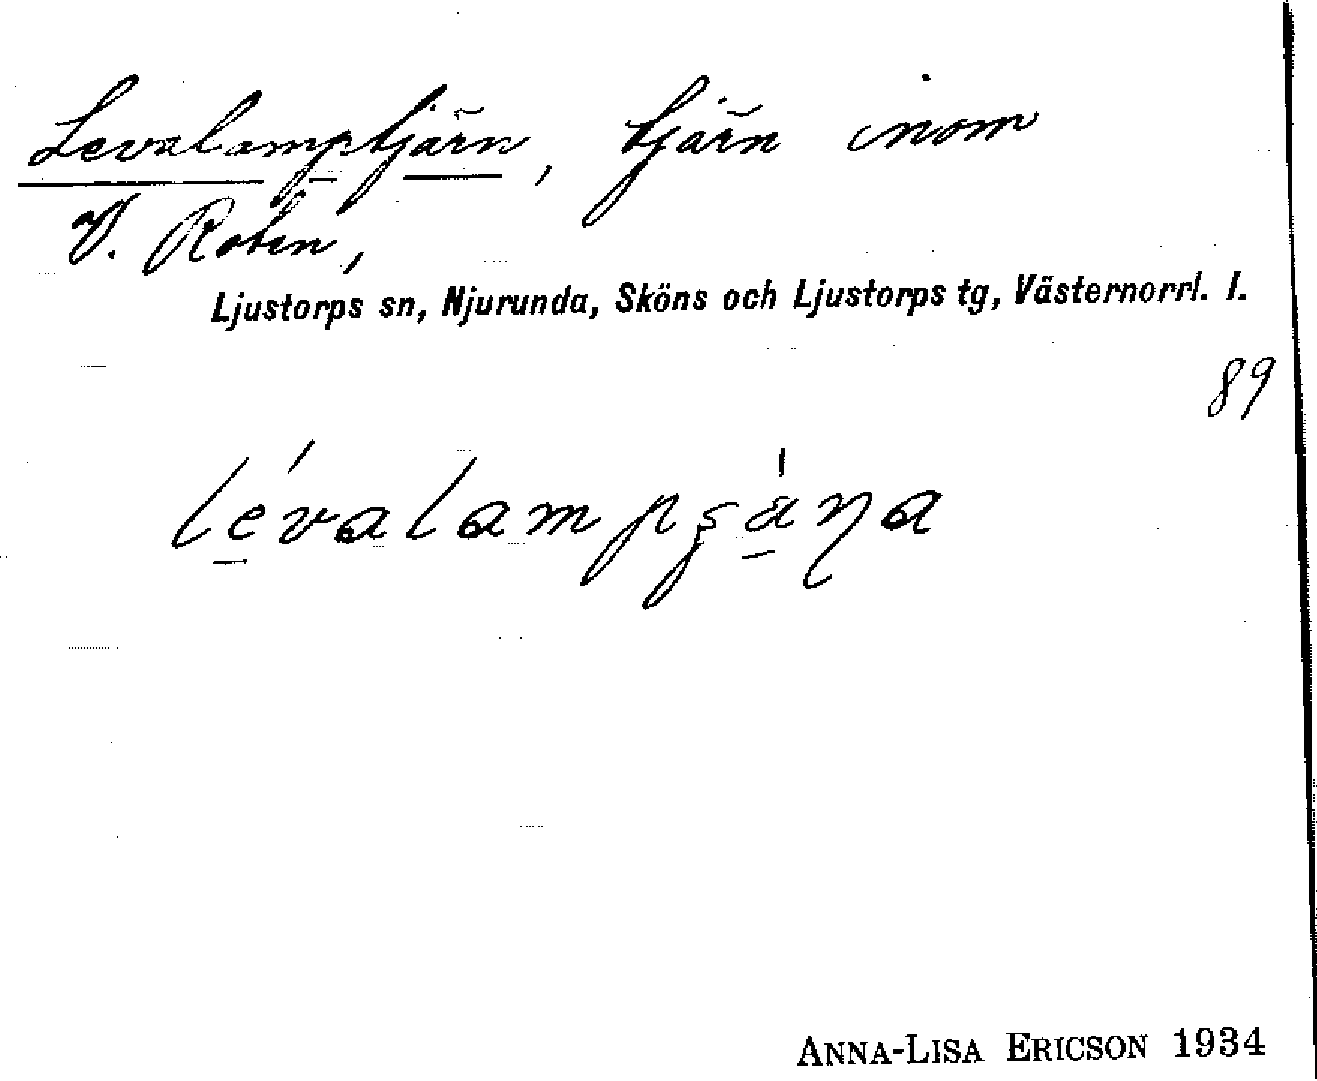 Levalamptjärn, tjärn inom
V. Roten,
Ljustorps sn, Njurunda, Sköns och Ljustorps tg, Västernorrl. l.
89
lévalampʂäṇa
ANNA-LISA ERICSON 1934